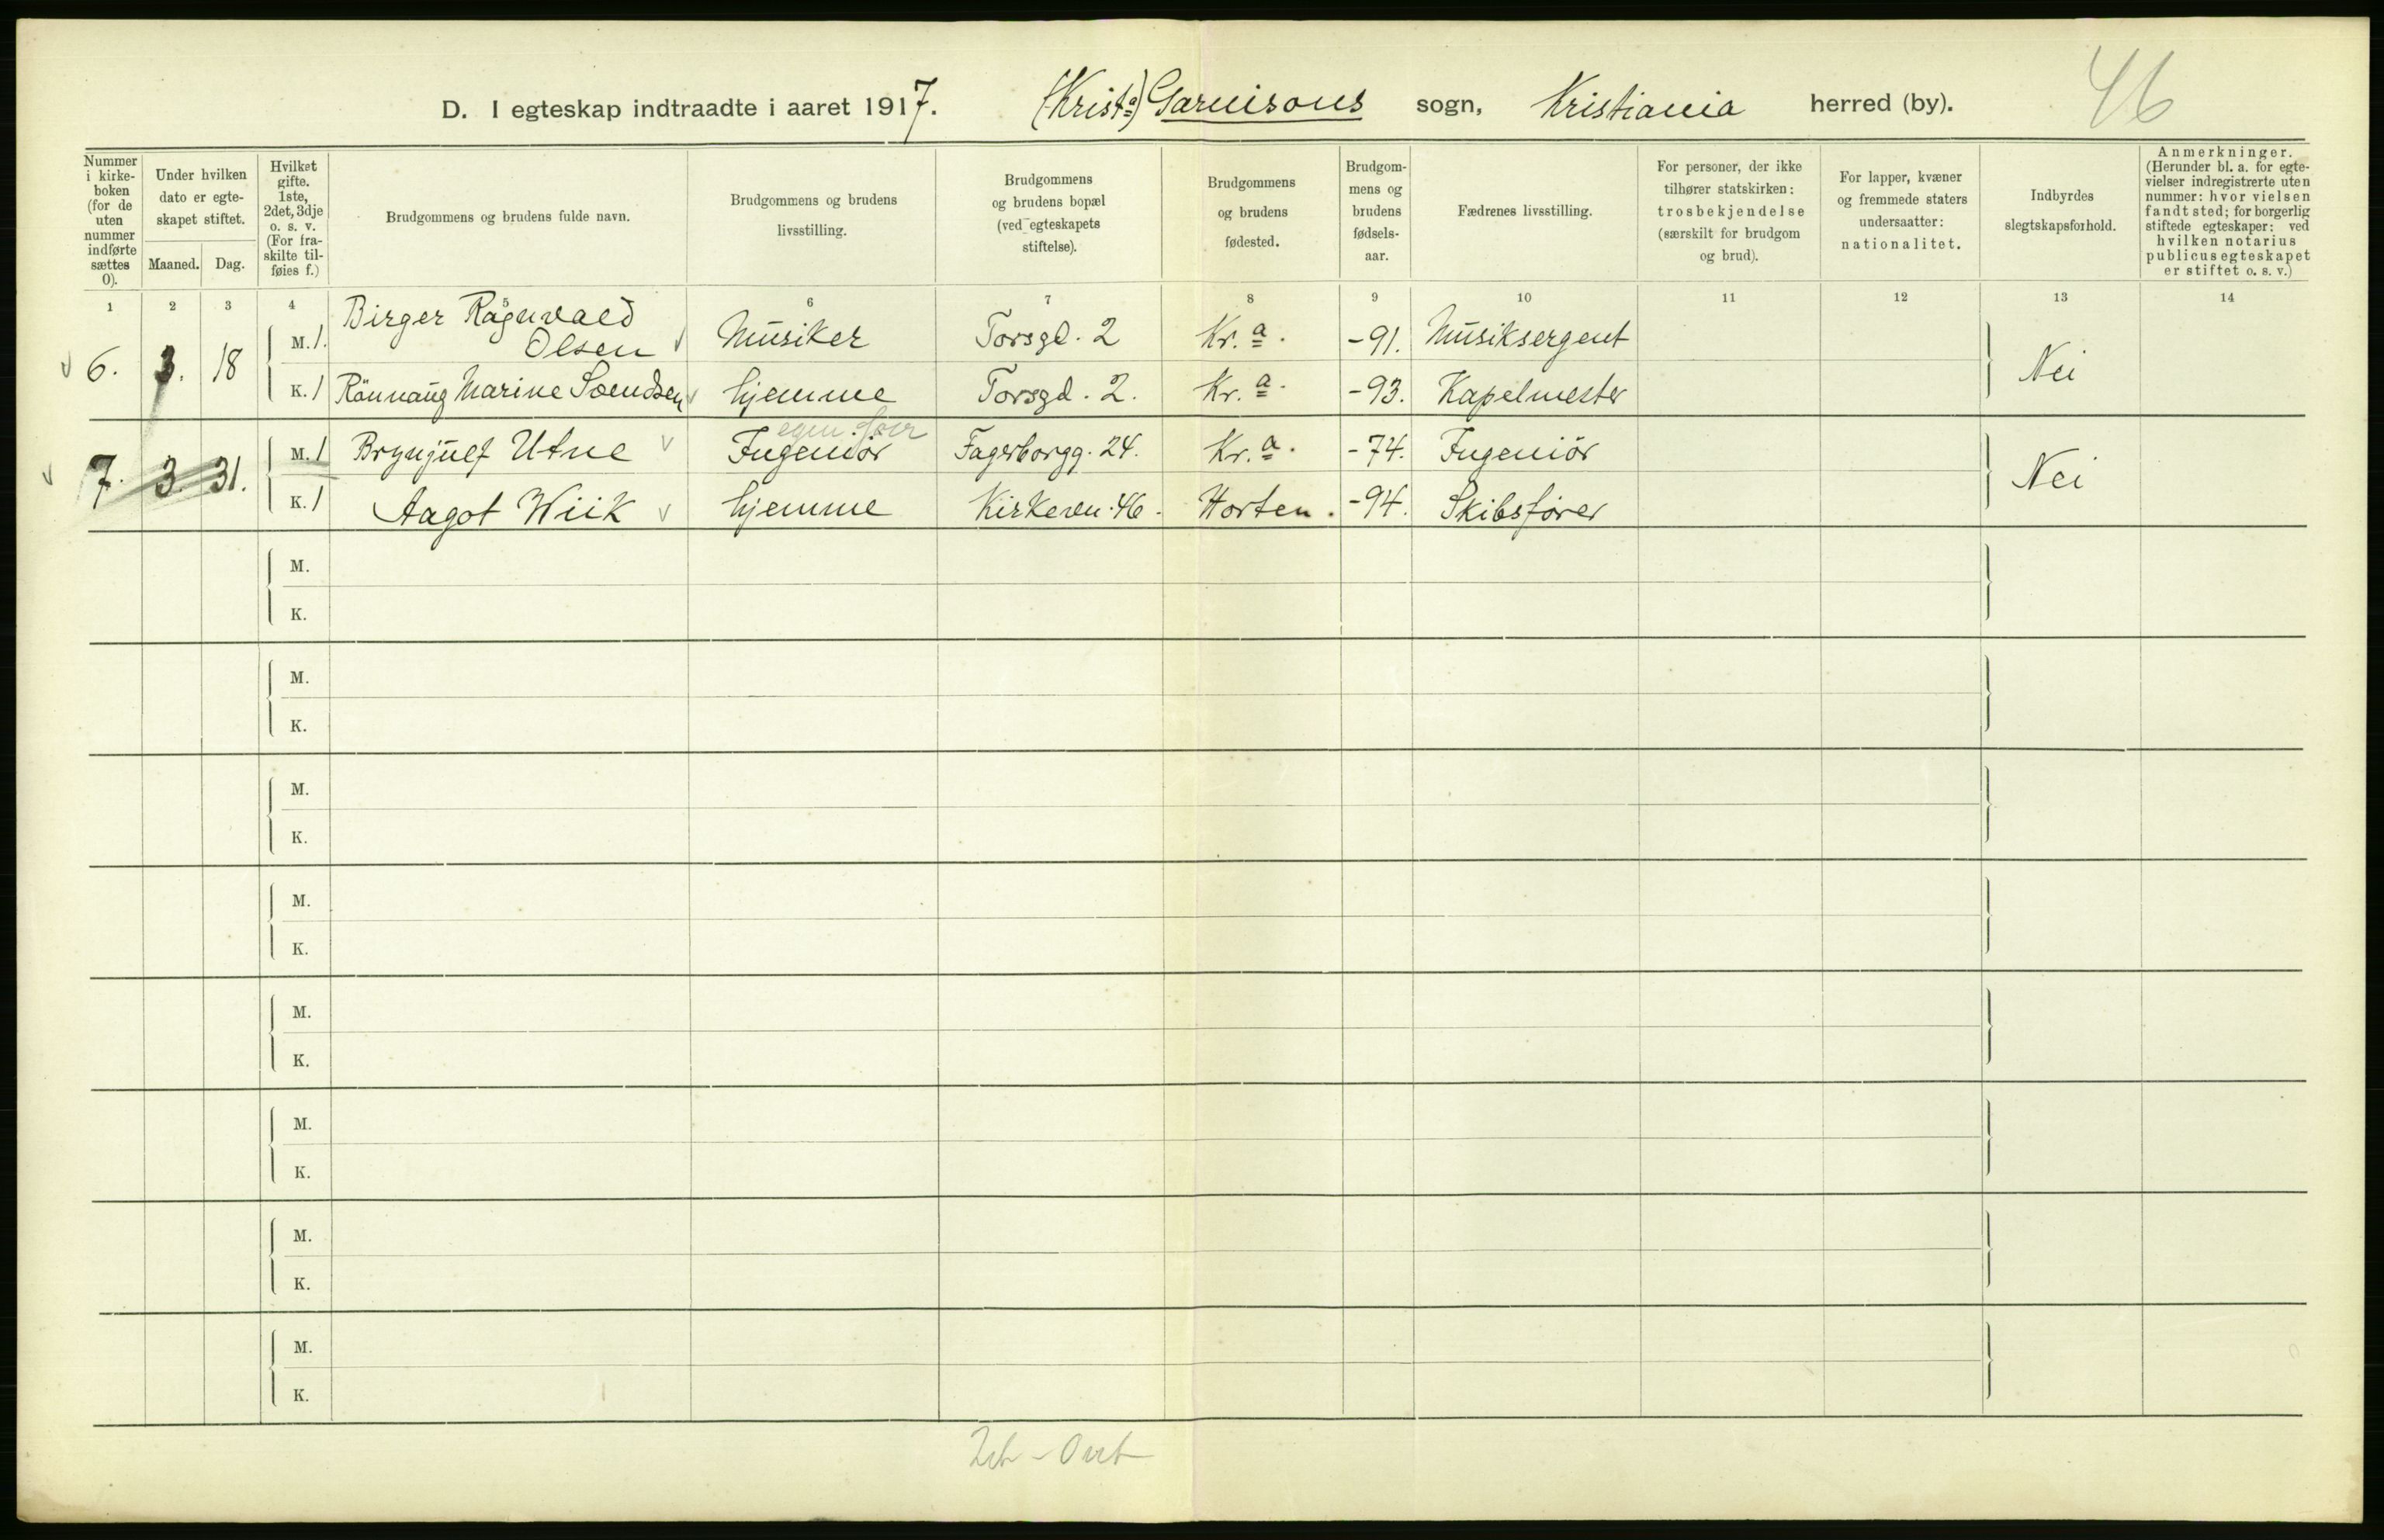 46
D. I egteskap indtraadte i aaret 1917. (Krista) Garnisons sogn, Kristiania herred (by).
Nummer i kirke-boken (for de uten nummer indførte sættes 0).
Under hvilken dato er egte-skapet stiftet.
Maaned. Dag.
Hvilket gifte. 1ste, 2det, 3dje o. s. v. (For fra-skilte til-føies f.)
Brudgommens og brudens fulde navn.
Brudgommens og brudens livsstilling.
Brudgommens og brudens bopæl (ved egteskapets stiftelse).
Brudgommens og brudens fødested.
Brudgom-mens og brudens fødsels-aar.
Fædrenes livsstilling.
For personer, der ikke tilhører statskirken: trosbekjendelse (særskilt for brudgom og brud).
For lapper, kvæner og fremmede staters undersaatter: nationalitet.
Indbyrdes slegtskapsforhold.
Anmerkninger. (Herunder bl. a. for egte-vielser indregistrerte uten nummer: hvor vielsen fandt sted; for borgerlig stiftede egteskaper: ved hvilken notarius publicus egteskapet er stiftet o. s. v.)
1 2 3 4 6 7 8 9 10 11 12 13 14
6. 3. 18 M. 1. Birger Ragnvald Olsen Musiker Torsgd. 2 Kr.a. -91. Musiksergent Nei
K. 1 Rønnaug Marine Svendsen hjemme Torsgd. 2. Kr.a. -93. Kapelmester
7. 3. 31. M. 1 Brynjulf Utne Ingeniør Fagerborgg. 24. Kr.a. -74. Ingeniør Nei
K. 1 Aagot Wiik hjemme Kirkevn. 46. Horten. -94. Skibsfører
M.
K.
M.
K.
M.
K.
M.
K.
M.
K.
M.
K.
M.
K.
M.
K.